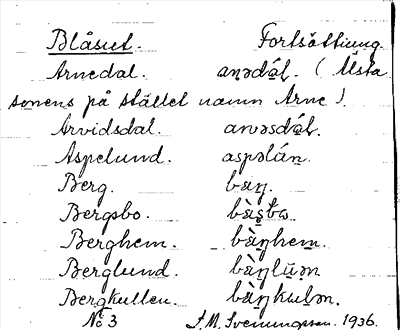 Blåsut. Fortsättning.
Arnedal. aṇədál. (Älsta
sonens på stället namn Arne).
Arvidsdal. arvəsdál.
Aspelund. aspəlán.
Berg. bæŋ.
Bergsbo. bæ̀ṣbɷ.
Berghem. bæ̀ŋhem.
Berglund. bæ̀ŋlūn.
Bergkullen. bæ̀ŋkulən.
No 3 J. M. Svenungsson. 1936.